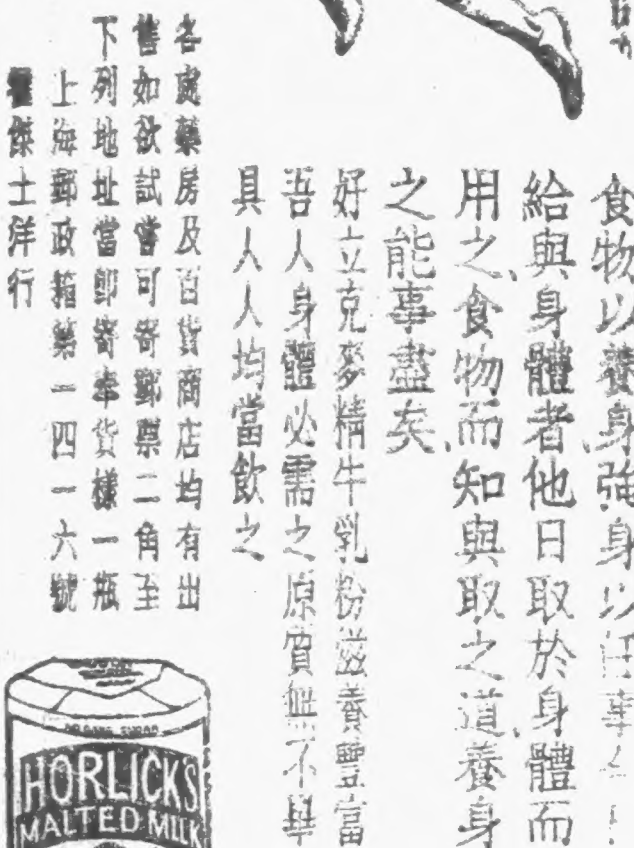 食物以養身強身以任事今日
給與身體者、他日取於身體而
用之、食物而知與取之道、養身
之能事盡矣、
好立克麥精牛乳粉滋養豐富
吾人身體必需之原質無不畢
具人人均當飲之
各處藥房及百貨商店均有出
售如欲試嘗可寄郵票二角至
下列地址當即寄奉貨樣一瓶
上海郵政箱第一四一六號
傑士洋行
HORLICK'S
MALTED MILK